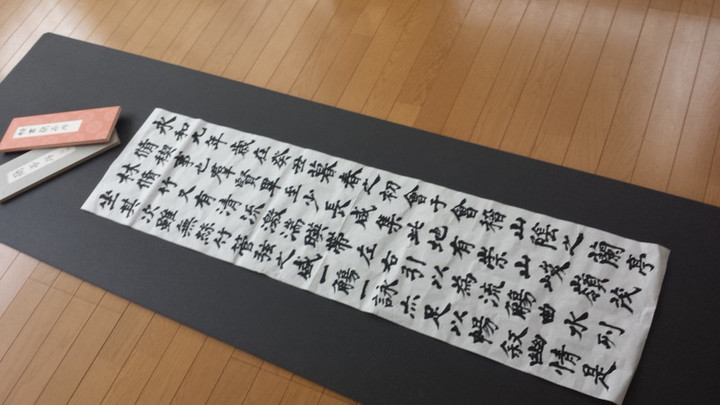 永和九年歳在癸丑暮春之初會于會稽山陰之蘭亭
脩禊事也羣賢畢至少長咸集此地有崇山峻嶺茂
林脩竹又有清流激湍暎帶左右引以為流觴曲水列
坐其次雖無絲竹管弦之盛一觴一詠亦足以暢叙幽情是